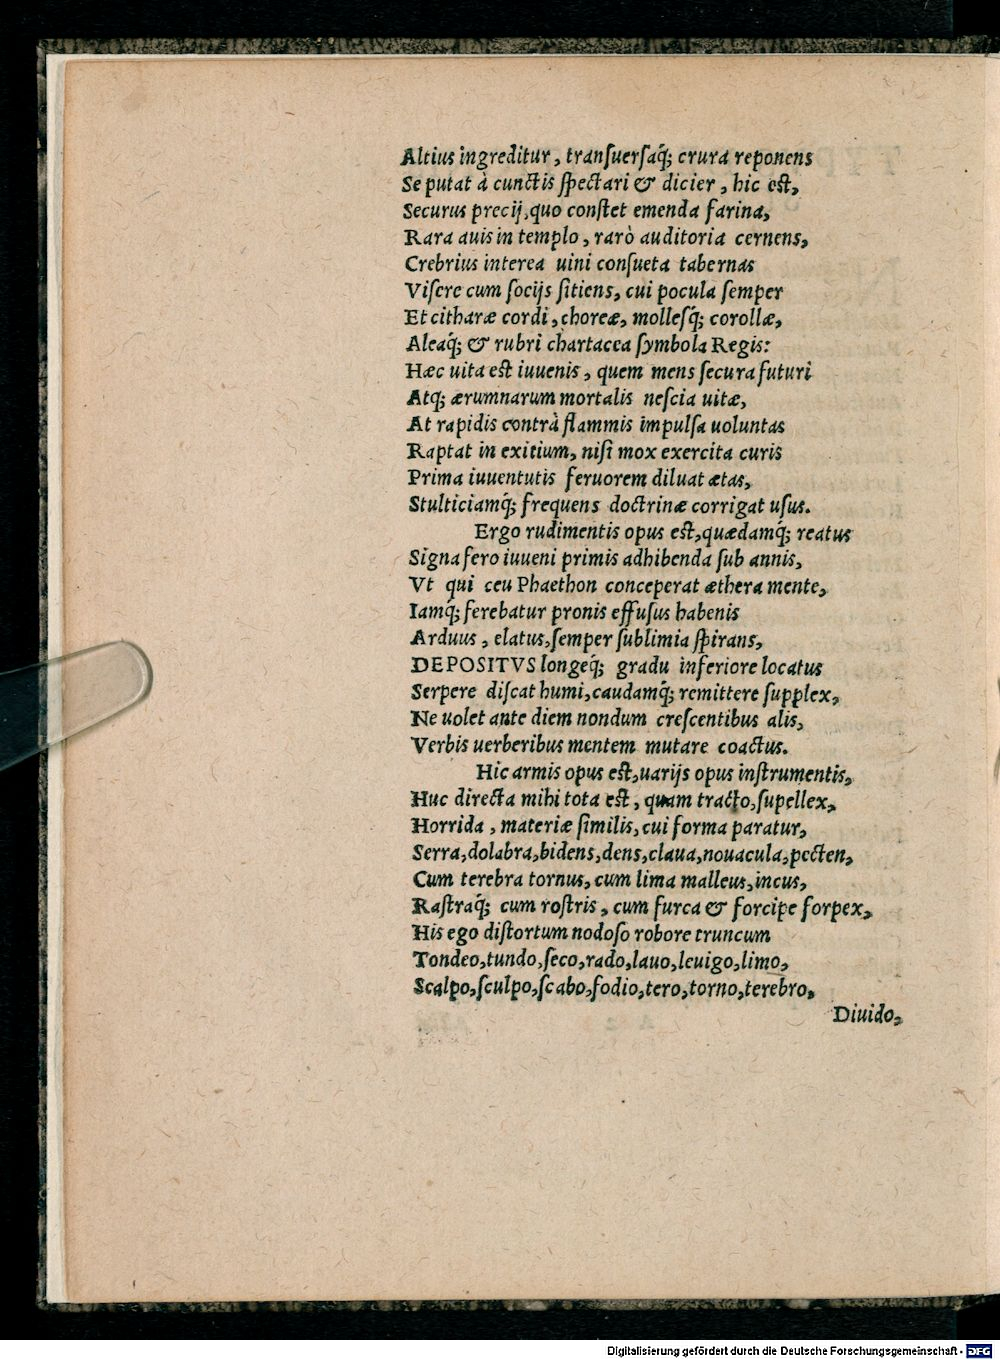 Altius ingreditur, tranſuerſaq́; crura reponens
Se putat à cunctis ſpectari & dicier, hic est,
Securus precij, quo conſtet emenda farina,
Rara auis in templo, rarò auditoria cernens,
Crebrius interea uini conſueta tabernas
Viſere cum ſocijs ſitiens, cui pocula ſemper
Et citharæ cordi, choreæ, molleſq́; corollæ,
Aleaq́; & rubri chartacea ſymbola Regis:
Hæc uita est iuuenis, quem mens ſecura futuri
Atq; ærumnarum mortalis neſcia uitæ,
At rapidis contrà flammis impulſa uoluntas
Raptat in exitium, niſi mox exercita curis
Prima iuuentutis feruorem diluat ætas,
Stulticiamq́; frequens doctrinæ corrigat uſus.
Ergo rudimentis opus est, quædamq́; reatus
Signa fero iuueni primis adhibenda ſub annis,
Vt qui ceu Phaethon conceperat æthera mente,
Iamq́; ferebatur pronis effuſus habenis
Arduus, elatus, ſemper ſublimia ſpirans,
DEPOSITVS longeq́; gradu inferiore locatus
Serpere diſcat humi, caudamq́; remittere ſupplex,
Ne uolet ante diem nondum creſcentibus alis,
Verbis uerberibus mentem mutare coactus.
Hic armis opus est, uarijs opus inſtrumentis,
Huc directa mihi tota est, quam tracto, ſupellex,
Horrida, materiæ ſimilis, cui forma paratur,
Serra, dolabra, bidens, dens, claua, nouacula, pecten,
Cum terebra tornus, cum lima malleus, incus,
Raſtraq́; cum roſtris, cum furca & forcipe forpex,
His ego diſtortum nodoſo robore truncum
Tondeo, tundo, ſeco, rado, lauo, leuigo, limo,
Scalpo, ſculpo, ſcabo, fodio, tero, torno, terebro,
Diuido,
Digitalisierung gefördert durch die Deutsche Forschungsgemeinschaft - DFG